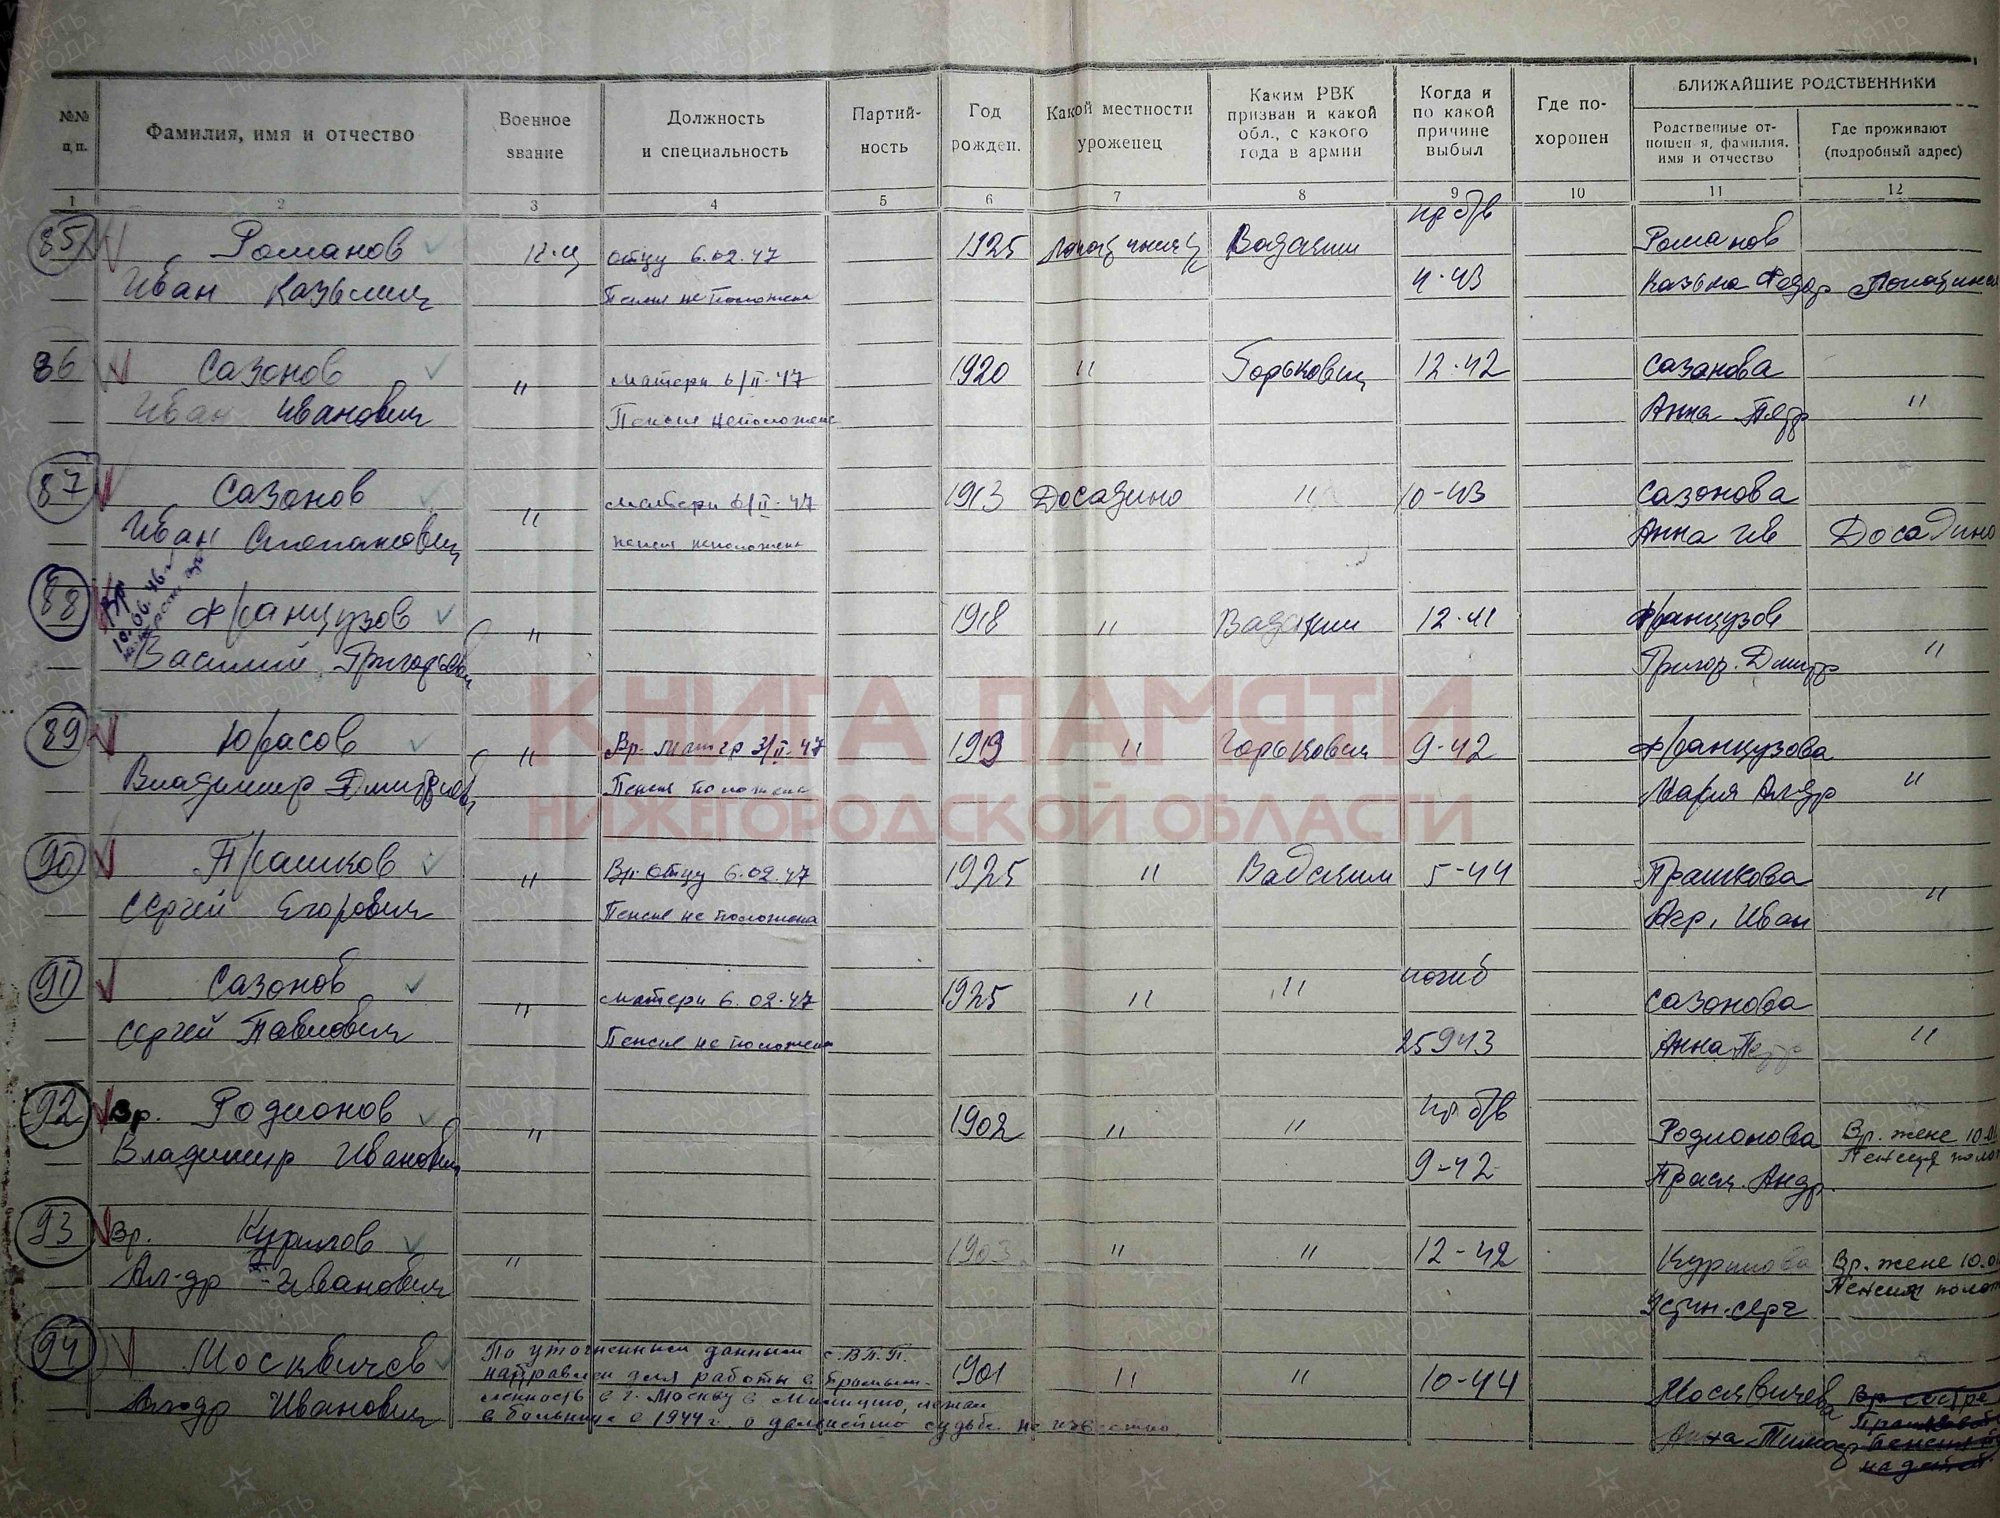 БЛИЖАЙШИЕ РОДСТВЕННИКИ
№№ п.п.
Фамилия, имя и отчество
Военное звание
Должность и специальность
Партий-ность
Год рожден.
Какой местности уроженец
Каким РВК призван и какой обл., с какого года в армии
Когда и по какой причине выбыл
Где по-хоронен
Родственные от-ношен я, фамилия, имя и отчество
Где проживают (подробный адрес)
1 2 3 4 5 6 7 8 9 10 11 12
пр б/в
85 Романов отцу 6.02.47 1925 Вадским Романов
Иван Казьмич Пенсия не положена 4-43 Казьма Федор
86 Сазонов " матери 6/II-47 1920 " Горьковск 12-42 Сазанова
Иван Иванович Пенсия неположена Анна Педр "
87 Сазонов " матери 6/II-47 1913 Досадино " 10-43 Сазонова
Иван Степанович пенсия неположена Анна Ив Досадино
Вр 10.06.46
88 Французов " 1918 " Вадским 12-41 Французов
Василий Григорьевич Григор. Дмитр "
89 Юрасов " Вр. матер 3/II-47 1919 " Горьковск 9-42 Французова
Владимир Дмитриевич Пенсия положена Мария Ал-др "
90 Прашков " Вр. отцу 6.02.47 1925 " Вадским 5-44 Прашкова
Сергей Егорович Пенсия не положена Иван "
91 Сазонов " матери 6.02.47 1925 " " погиб Сазонова
Сергей Павлович Пенсия не положена 25943 Анна Педр "
92 Вр. Родионов " 1902 " " пр б/в Родионова Вр. жене
Владимир Иванович 9-42 Праск. Андр. Пенсия
93 Вр. Курилов " 1903 " " 12-42 Курилова Вр. жене
Ал-др Иванович Устин. Серг Пенсия
94 Москвичев По уточненным данным с. ВП.П. 1901 " " 10-44 Москвичева Вр сестре
Ал-др Иванович направлен для работы в промыш- Анна
ленность в г. Москву в милицию, лежал
в больнице в 1944 г. о дальнейшей судьбе не известно
КНИГА ПАМЯТИ
НИЖЕГОРОДСКОЙ ОБЛАСТИ
ПАМЯТЬ НАРОДА